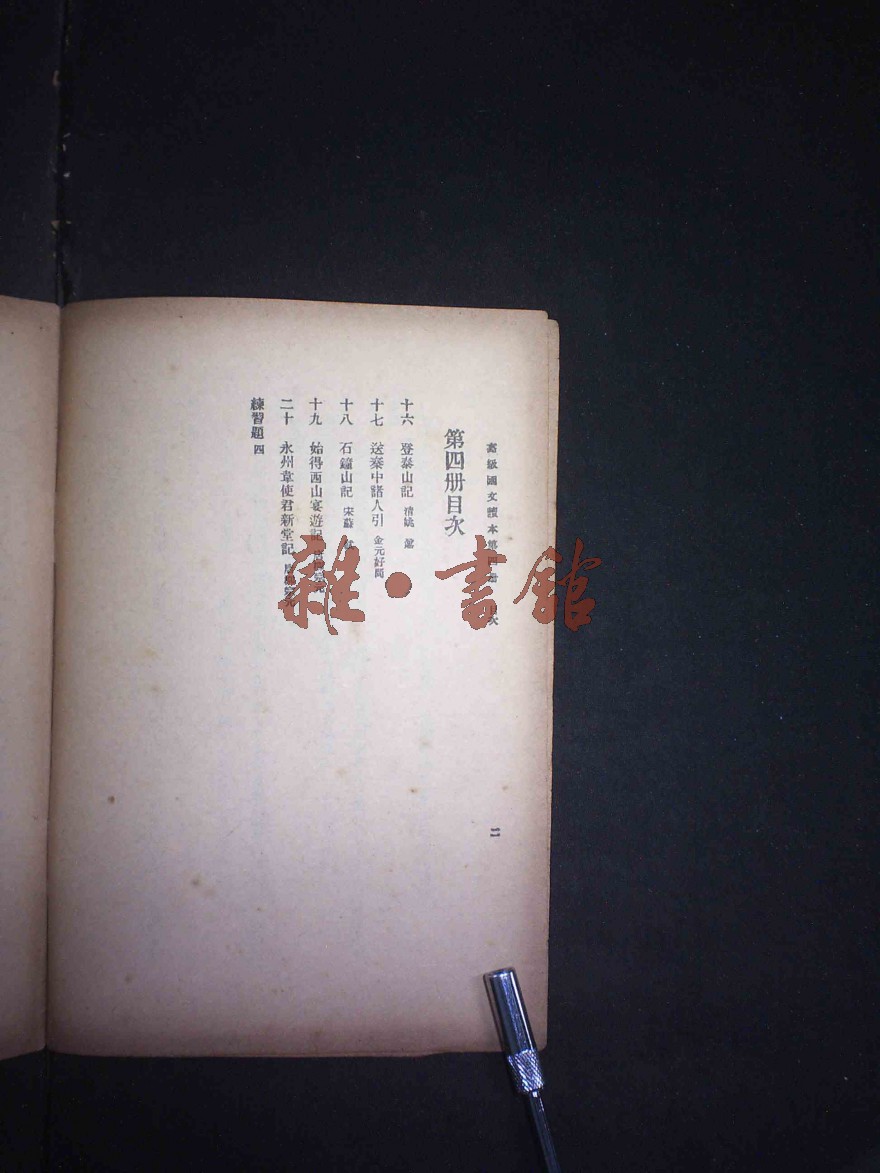 高級國文讀本第四册 目次
二
第四册目次
十六 登泰山記 清姚鼐
十七 送秦中諸人引 金元好問
十八 石鐘山記 宋蘇
十九 始得西山宴遊記
二十 永州韋使君新堂記
練習題 四
雜·書館